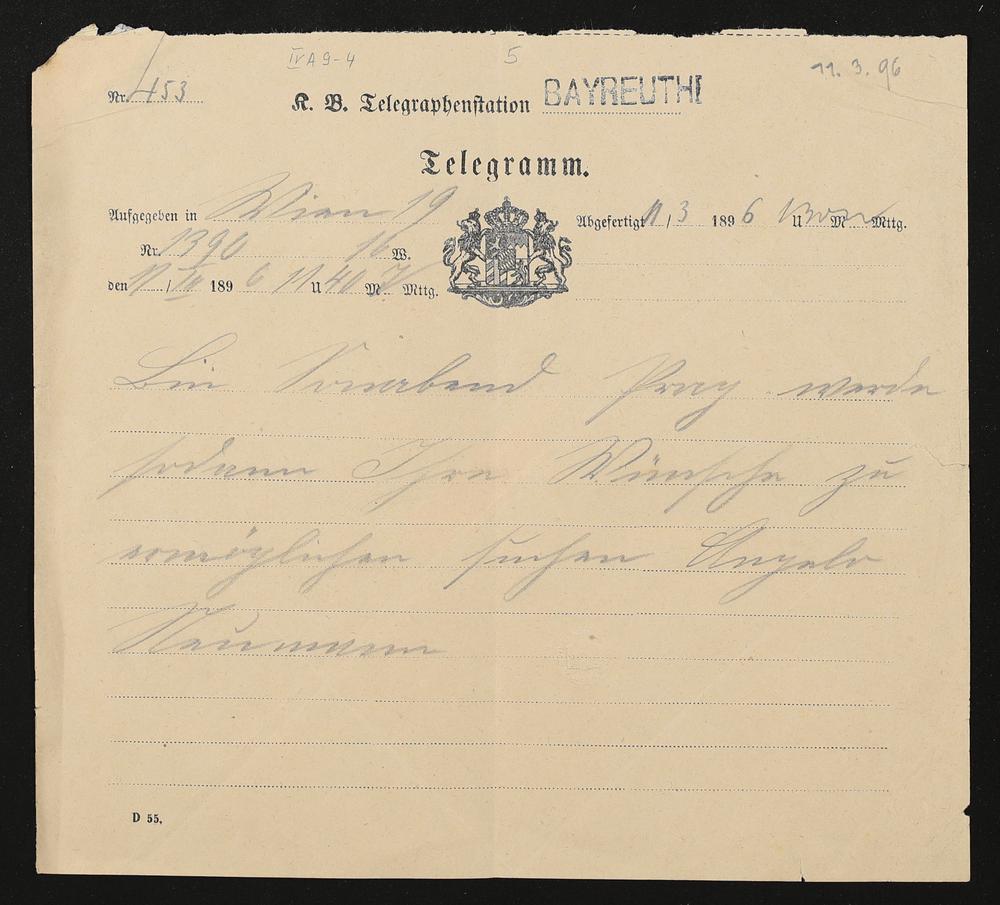 IV A 9-4 5 11. 3. 96
Nr. 453
K. B. Telegraphenstation BAYREUTH I
Telegramm.
Aufgegeben in Wien 19 Abgefertigt 11/3 1896 U M Mttg.
Nr. 1390 16 W.
den 11/III 1896 11 U 40 M Mttg.
Bin Sonnabend Prag werde
sodann Ihre Wünsche zu
ermöglichen suchen Angelo
Neumann
D 55.